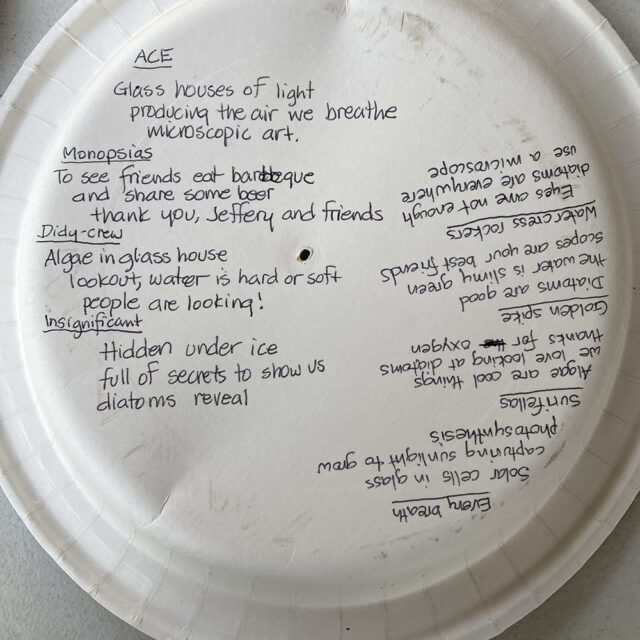 ACE
Glass houses of light
producing the air we breathe
microscopic art.
Monopsias
To see friends eat barbeque
and share some beer
thank you, Jeffery and friends
Didy-crew
Algae in glass house
lookout, water is hard or soft
people are looking!
Insignificant
Hidden under ice
full of secrets to show us
diatoms reveal
Every breath
Solar cells in glass
capturing sunlight to grow
photosynthesis
Surifellas
Algae are cool things
we love looking at diatoms
thanks for oxygen
Golden spike
Diatoms are good
the water is slimy green
scopes are your best friends
Watercress rockers
Eyes are not enough
diatoms are everywhere
use a microscope